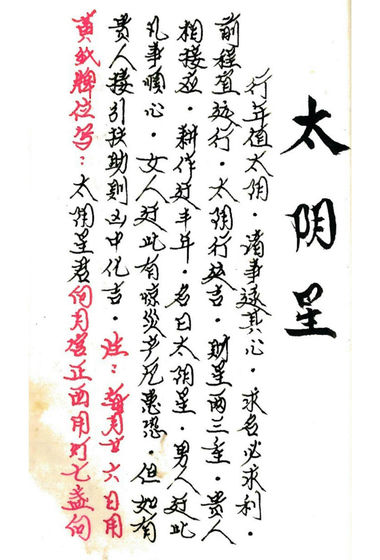 太阴星
行年值太阴，诸事遂其心，求名必求利，
前程行，太阴行吉，财星两三重，贵人
相接应，耕作逢丰年，名曰太阴星，男人逢此
凡事顺心，女人逢此有惊灾产厄患恐，但如有
贵人接引扶助则凶中化吉。注：每月廿六日用
黄纸牌位写：太阴星君向月宫正西用灯七盏向